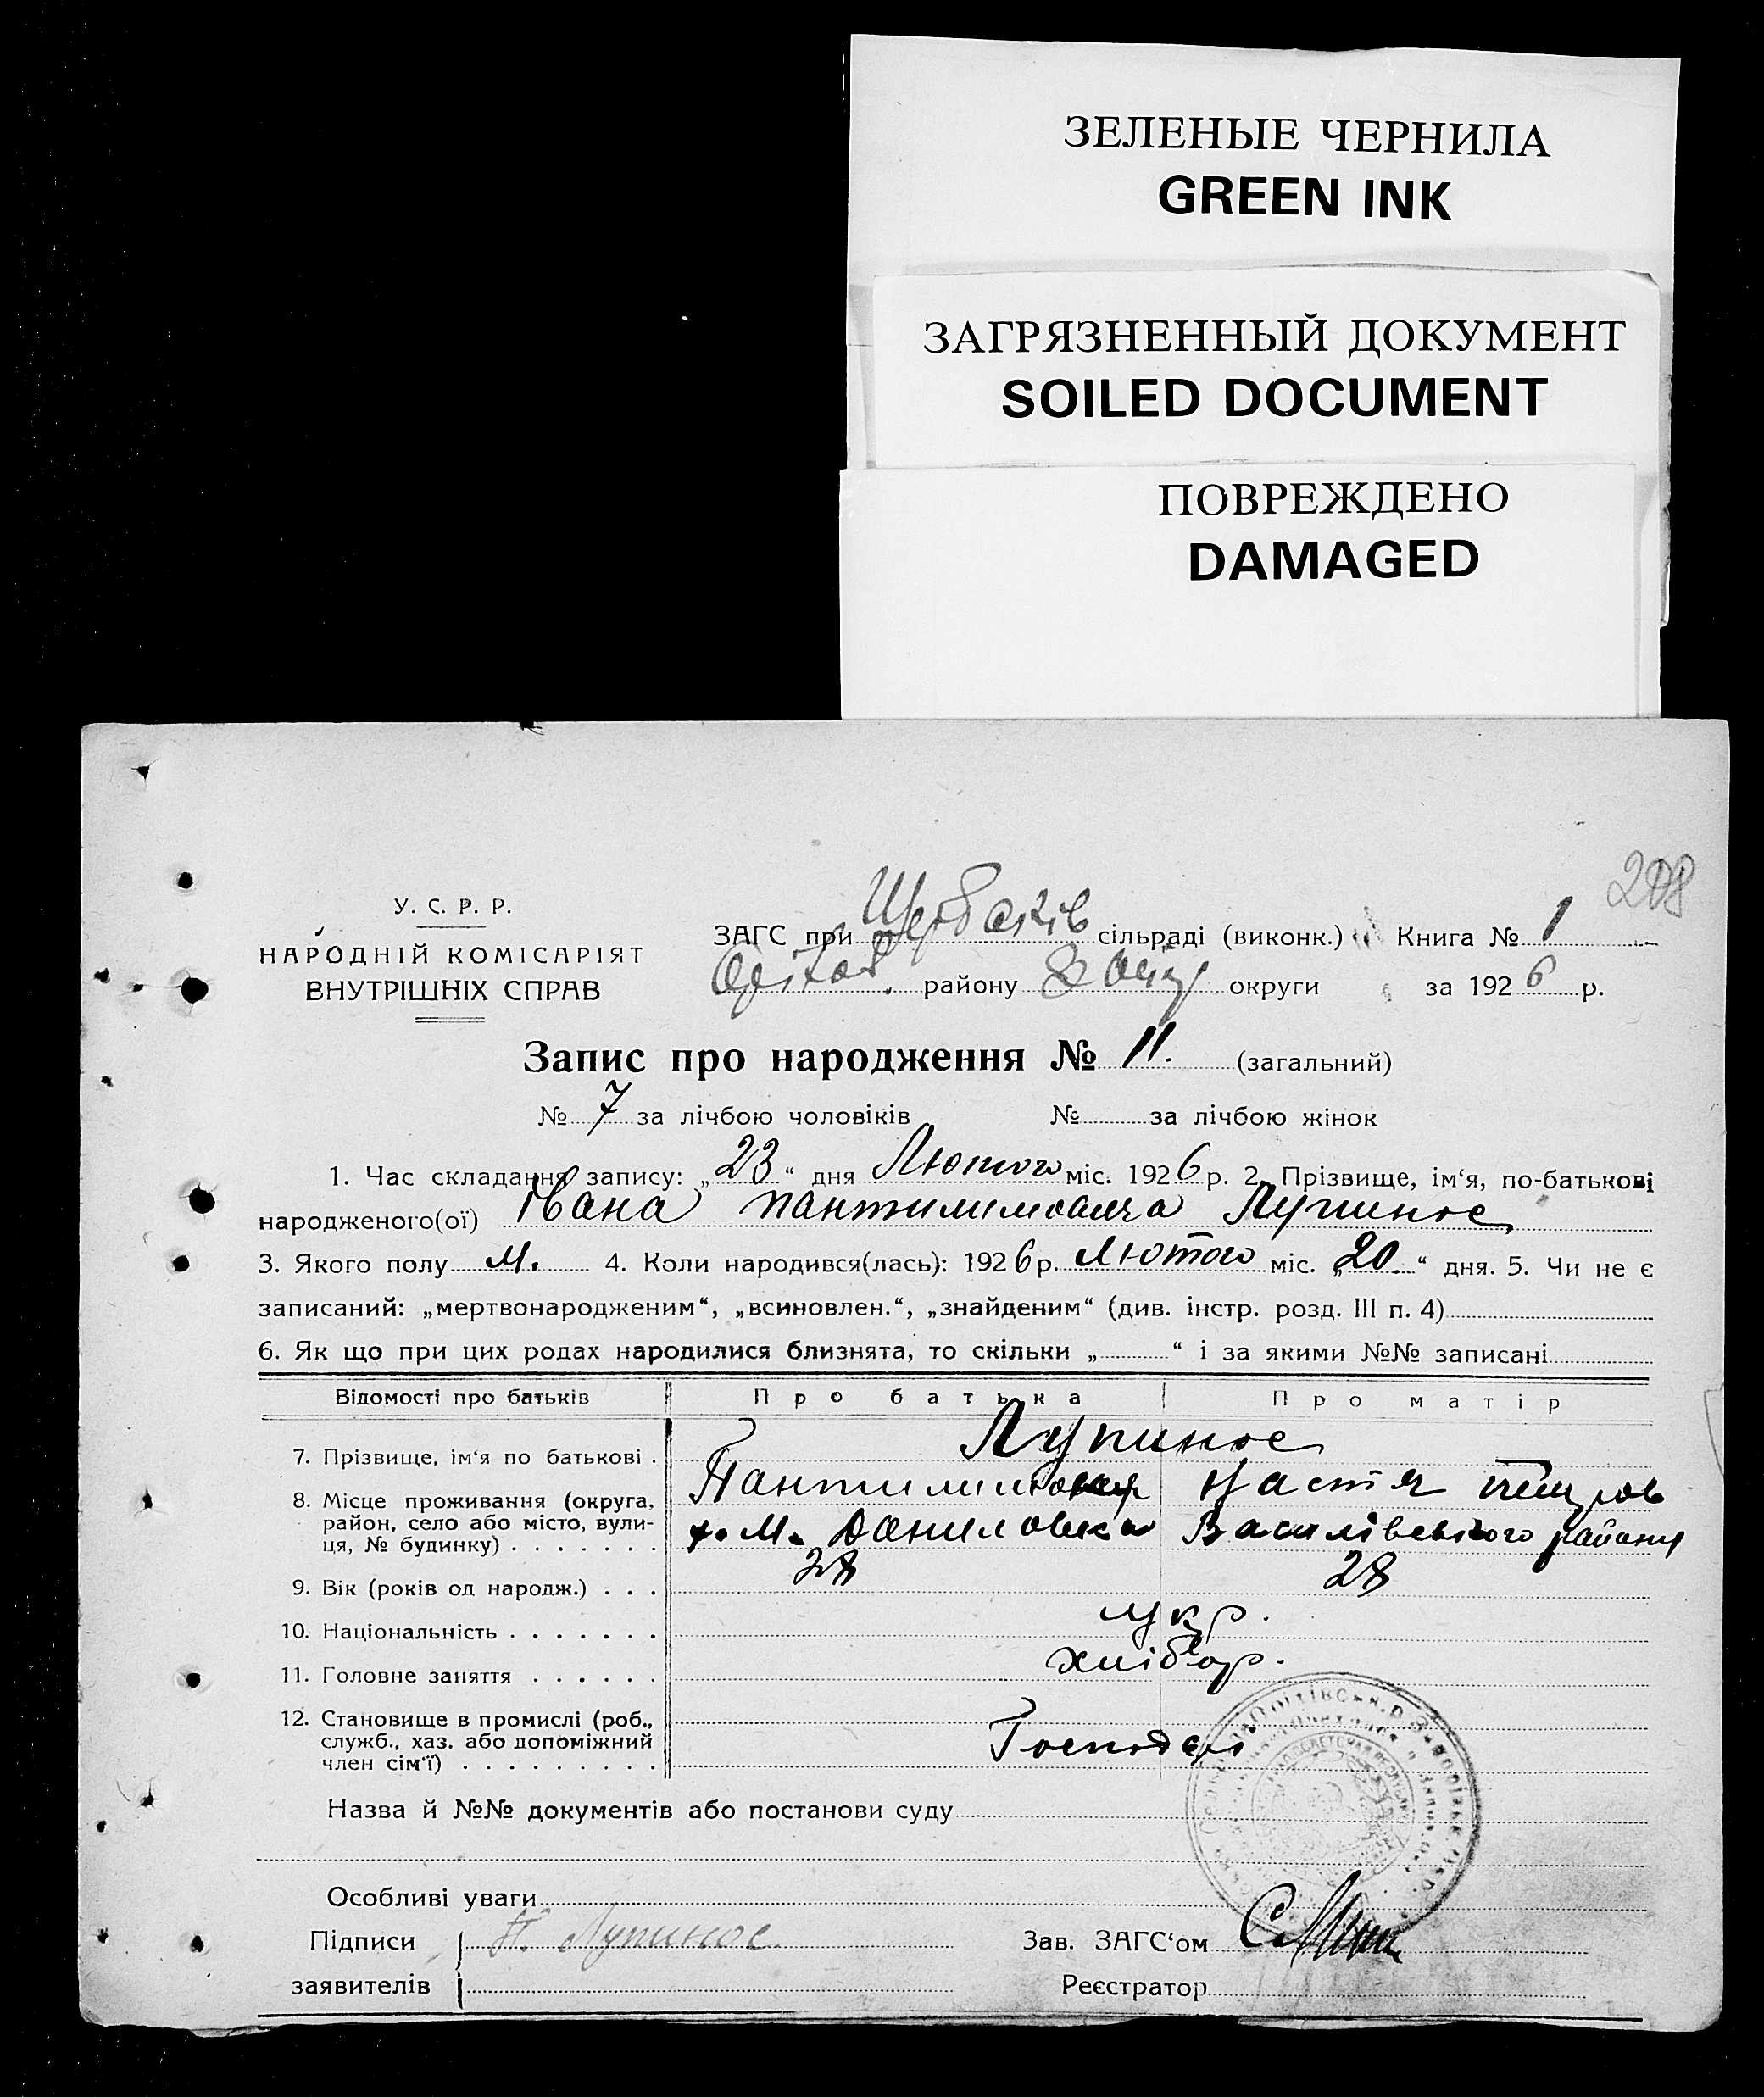 ЗЕЛЕНЫЕ ЧЕРНИЛА
GREEN INK
ЗАГРЯЗНЕННЫЙ ДОКУМЕНТ
SOILED DOCUMENT
ПОВРЕЖДЕНО
DAMAGED
208
У. С. Р. Р.
НАРОДНІЙ КОМІСАРІЯТ
ВНУТРІШНІХ СПРАВ
ЗАГС при Щербаків сільраді (виконк.) Книга № 1
Оріхов. району Запор округи за 1926 р.
Запис про народження № 11. (загальний)
№ 7 за лічбою чоловіків № за лічбою жінок
1. Час складання запису: „23“ дня Лютого міс. 1926 р. 2. Прізвище, ім‘я, по-батькові
народженого(ої) Івана Лупинос
3. Якого полу М. 4. Коли народився(лась): 1926 р. Лютого міс. „20.“ дня. 5. Чи не є
записаний: „мертвонародженим“, „всиновлен.“, „знайденим“ (див. інстр. розд. III п. 4)
6. Як що при цих родах народилися близнята, то скільки „ “ і за якими №№ записані
Відомості про батьків Про батька Про матір
7. Прізвище, ім‘я по батькові . Лупинос
8. Місце проживання (округа, Настя
район, село або місто, вули- х. М. Василівського району
ця, № будинку) . . . . . . .
9. Вік (років од народж.) . . . 28 28
10. Національність . . . . . . . укр.
11. Головне заняття . . . . . . хлібор.
12. Становище в промислі (роб.,
служб., хаз. або допоміжний Господар
член сім‘ї) . . . . . . . . .
Назва й №№ документів або постанови суду
Особливі уваги
Підписи П. Лупинос Зав. ЗАГС‘ом
заявителів Реєстратор